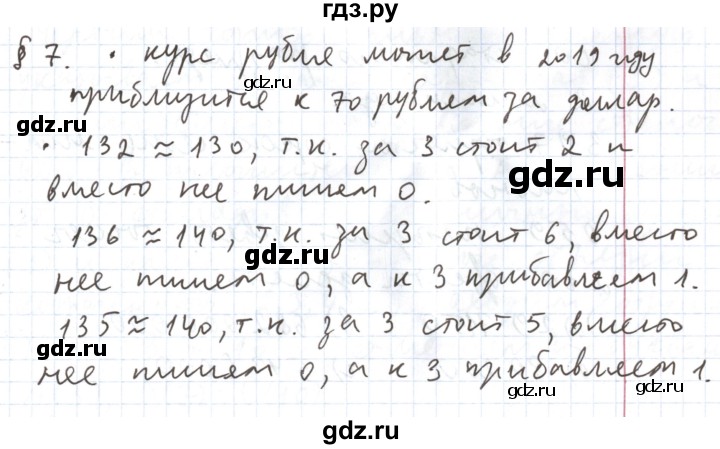 гдз.ру
§ 7. • курс рубля может в 2019 году
приблизится к 70 рублям за доллар.
gdz.ru
• 132 ≈ 130, т.к. за 3 стоит 2 и
gdz.ru
вместо нее пишем 0.
136 ≈ 140, т.к. за 3 стоит 6, вместо
gdz.ru
нее пишем 0, а к 3 прибавляем 1.
gdz.ru
135 ≈ 140, т.к. за 3 стоит 5, вместо
gdz.ru
нее пишем 0, а к 3 прибавляем 1.
gdz.ru
gdz.ru
gdz.ru